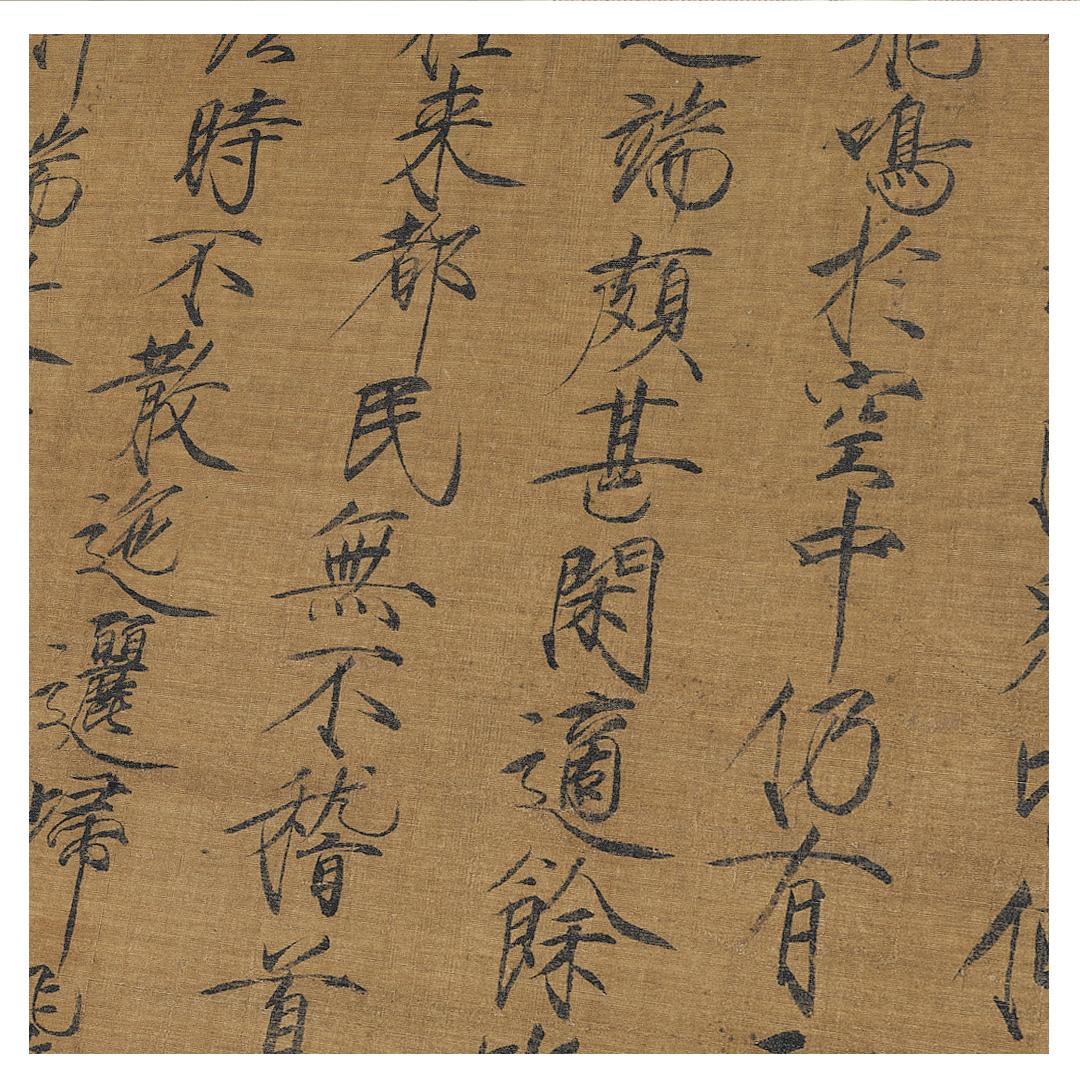 飛鳴於空中仍有
之端頗甚閑適餘
往來都民無不稽首
時不散迤邐歸飛
端